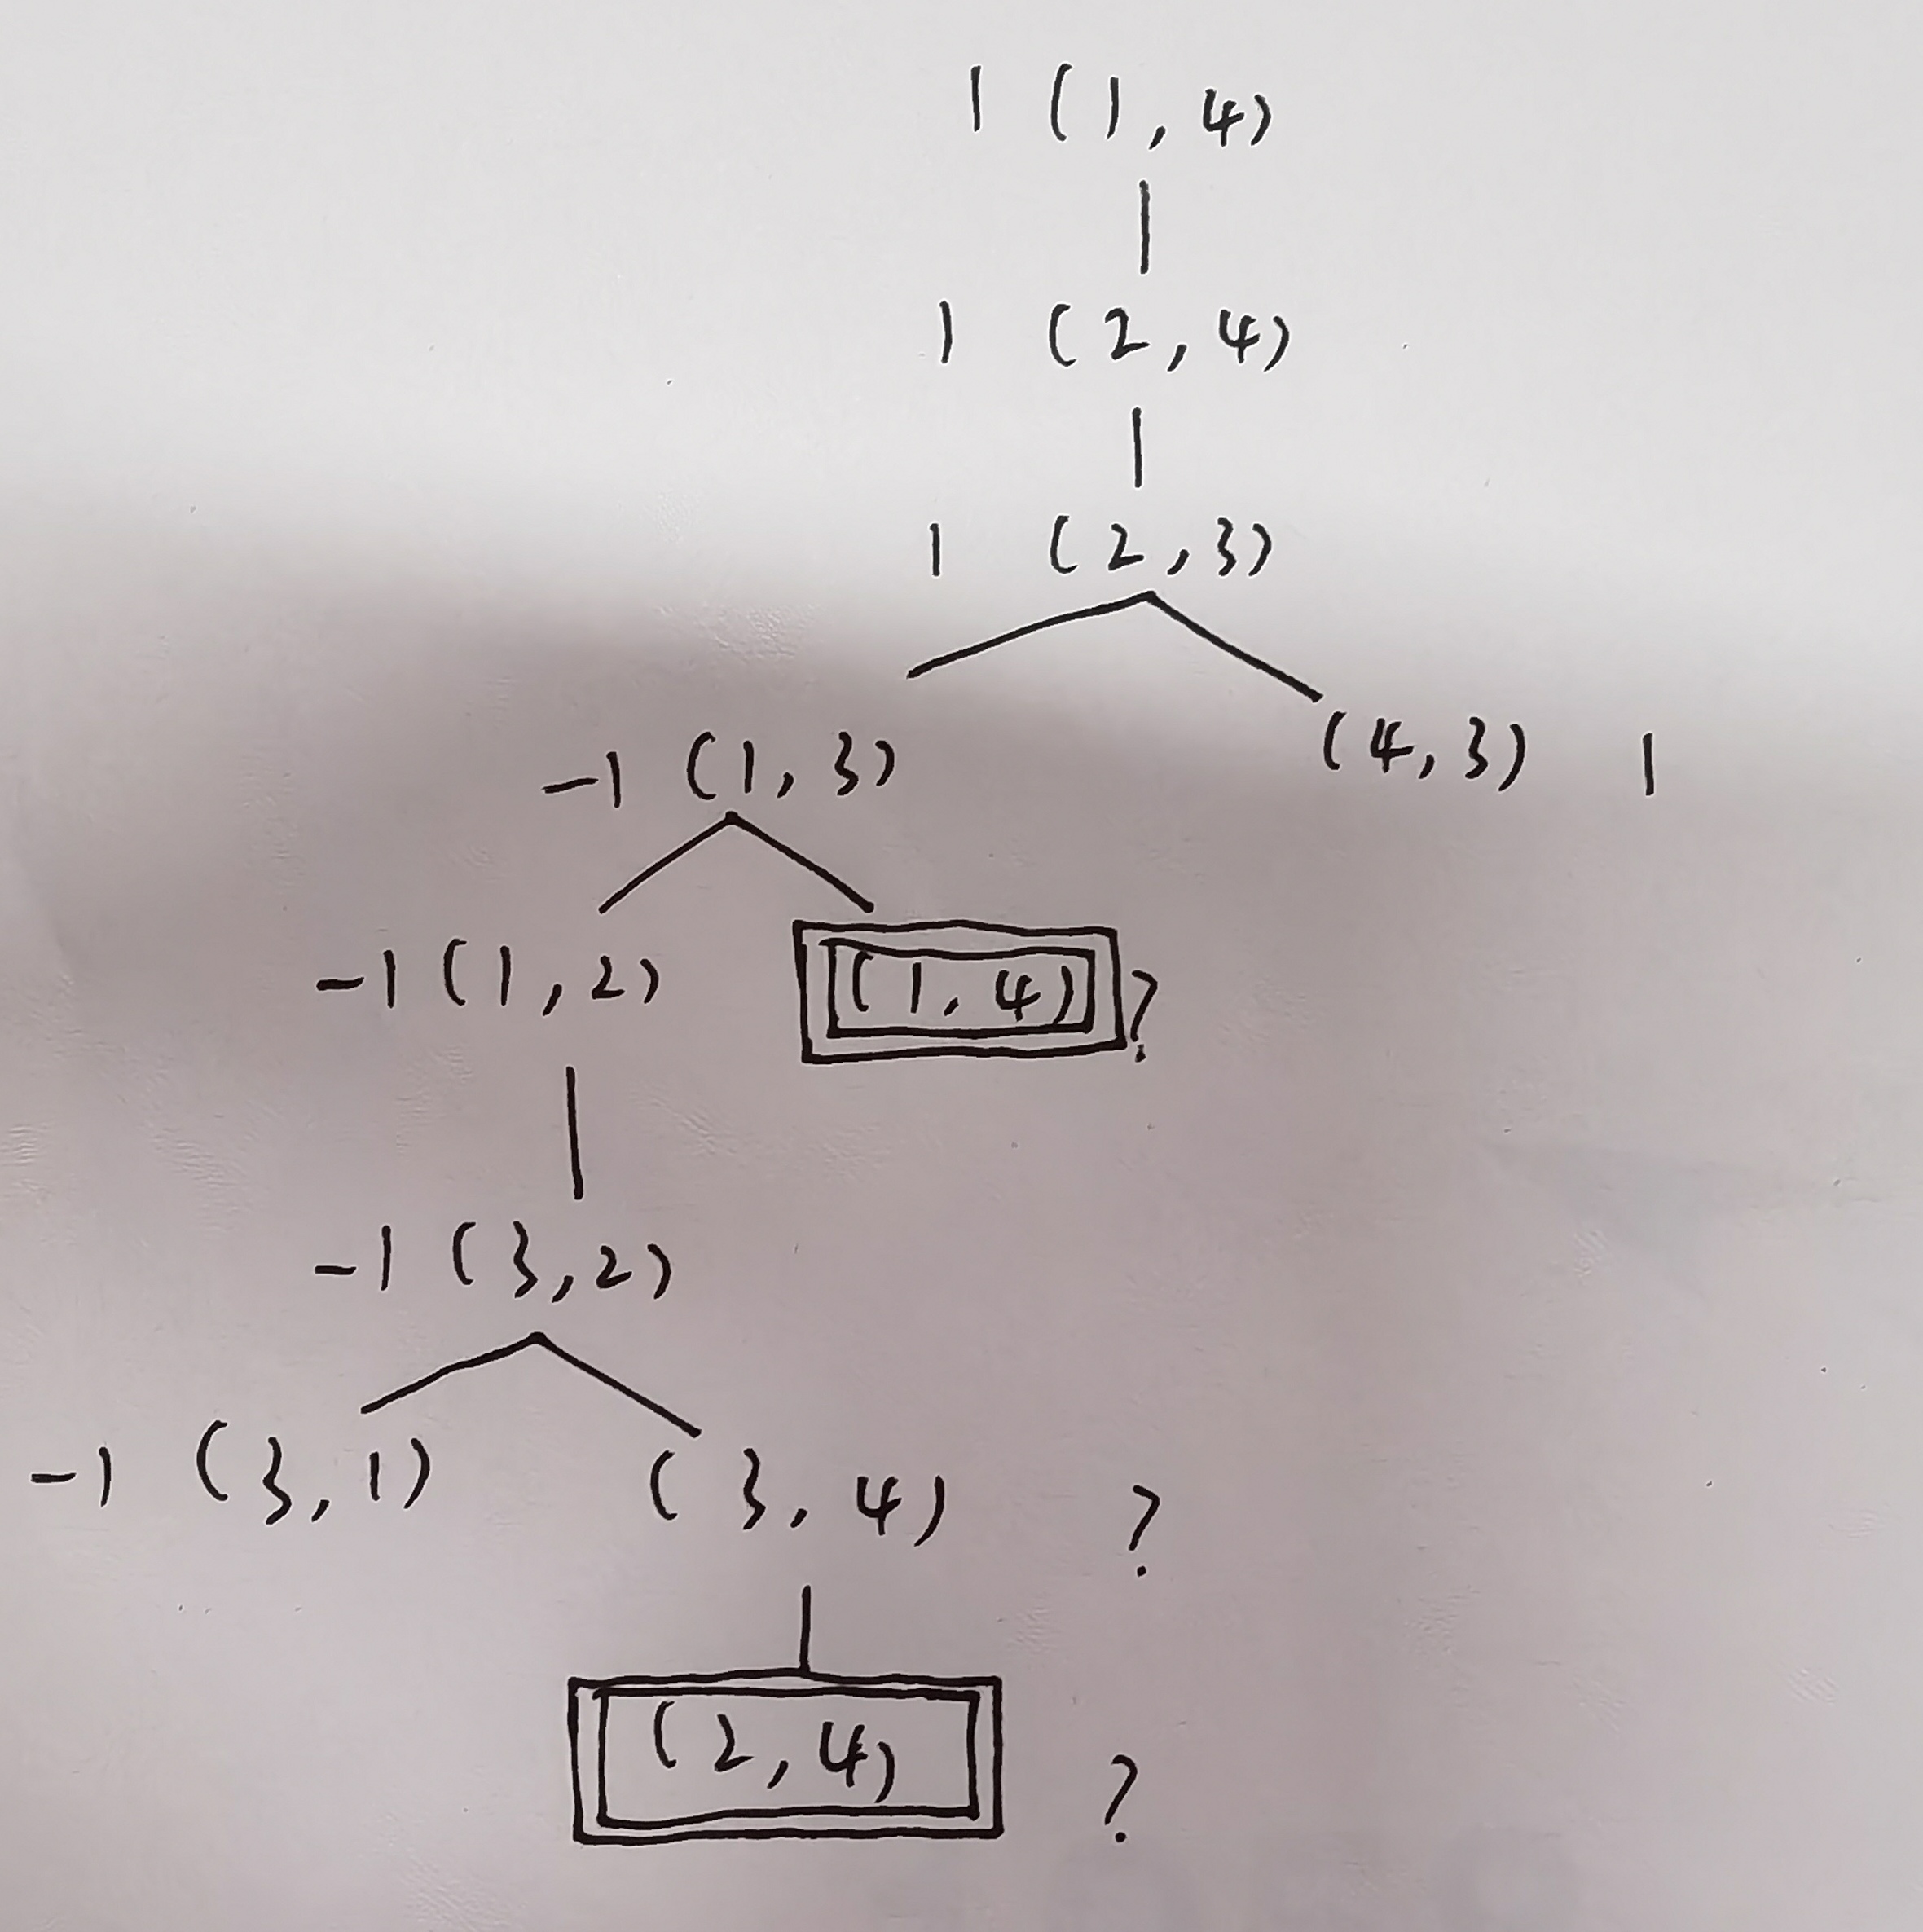 1 (1,4)
1 (2,4)
1 (2,3)
-1 (1,3) (4,3) 1
-1 (1,2) (1,4) ?
-1 (3,2)
-1 (3,1) (3,4) ?
(2,4) ?